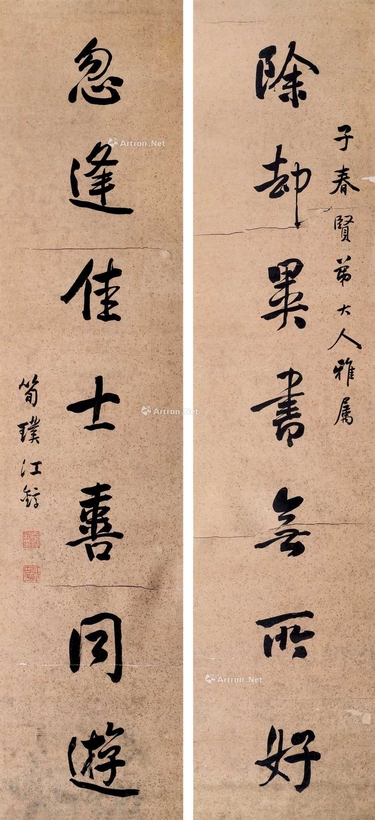 子春賢弟大人雅属
除却異書無所好
忽逢佳士喜同遊
筍璞江
Artron.Net
Artron.Net
Artron.Net